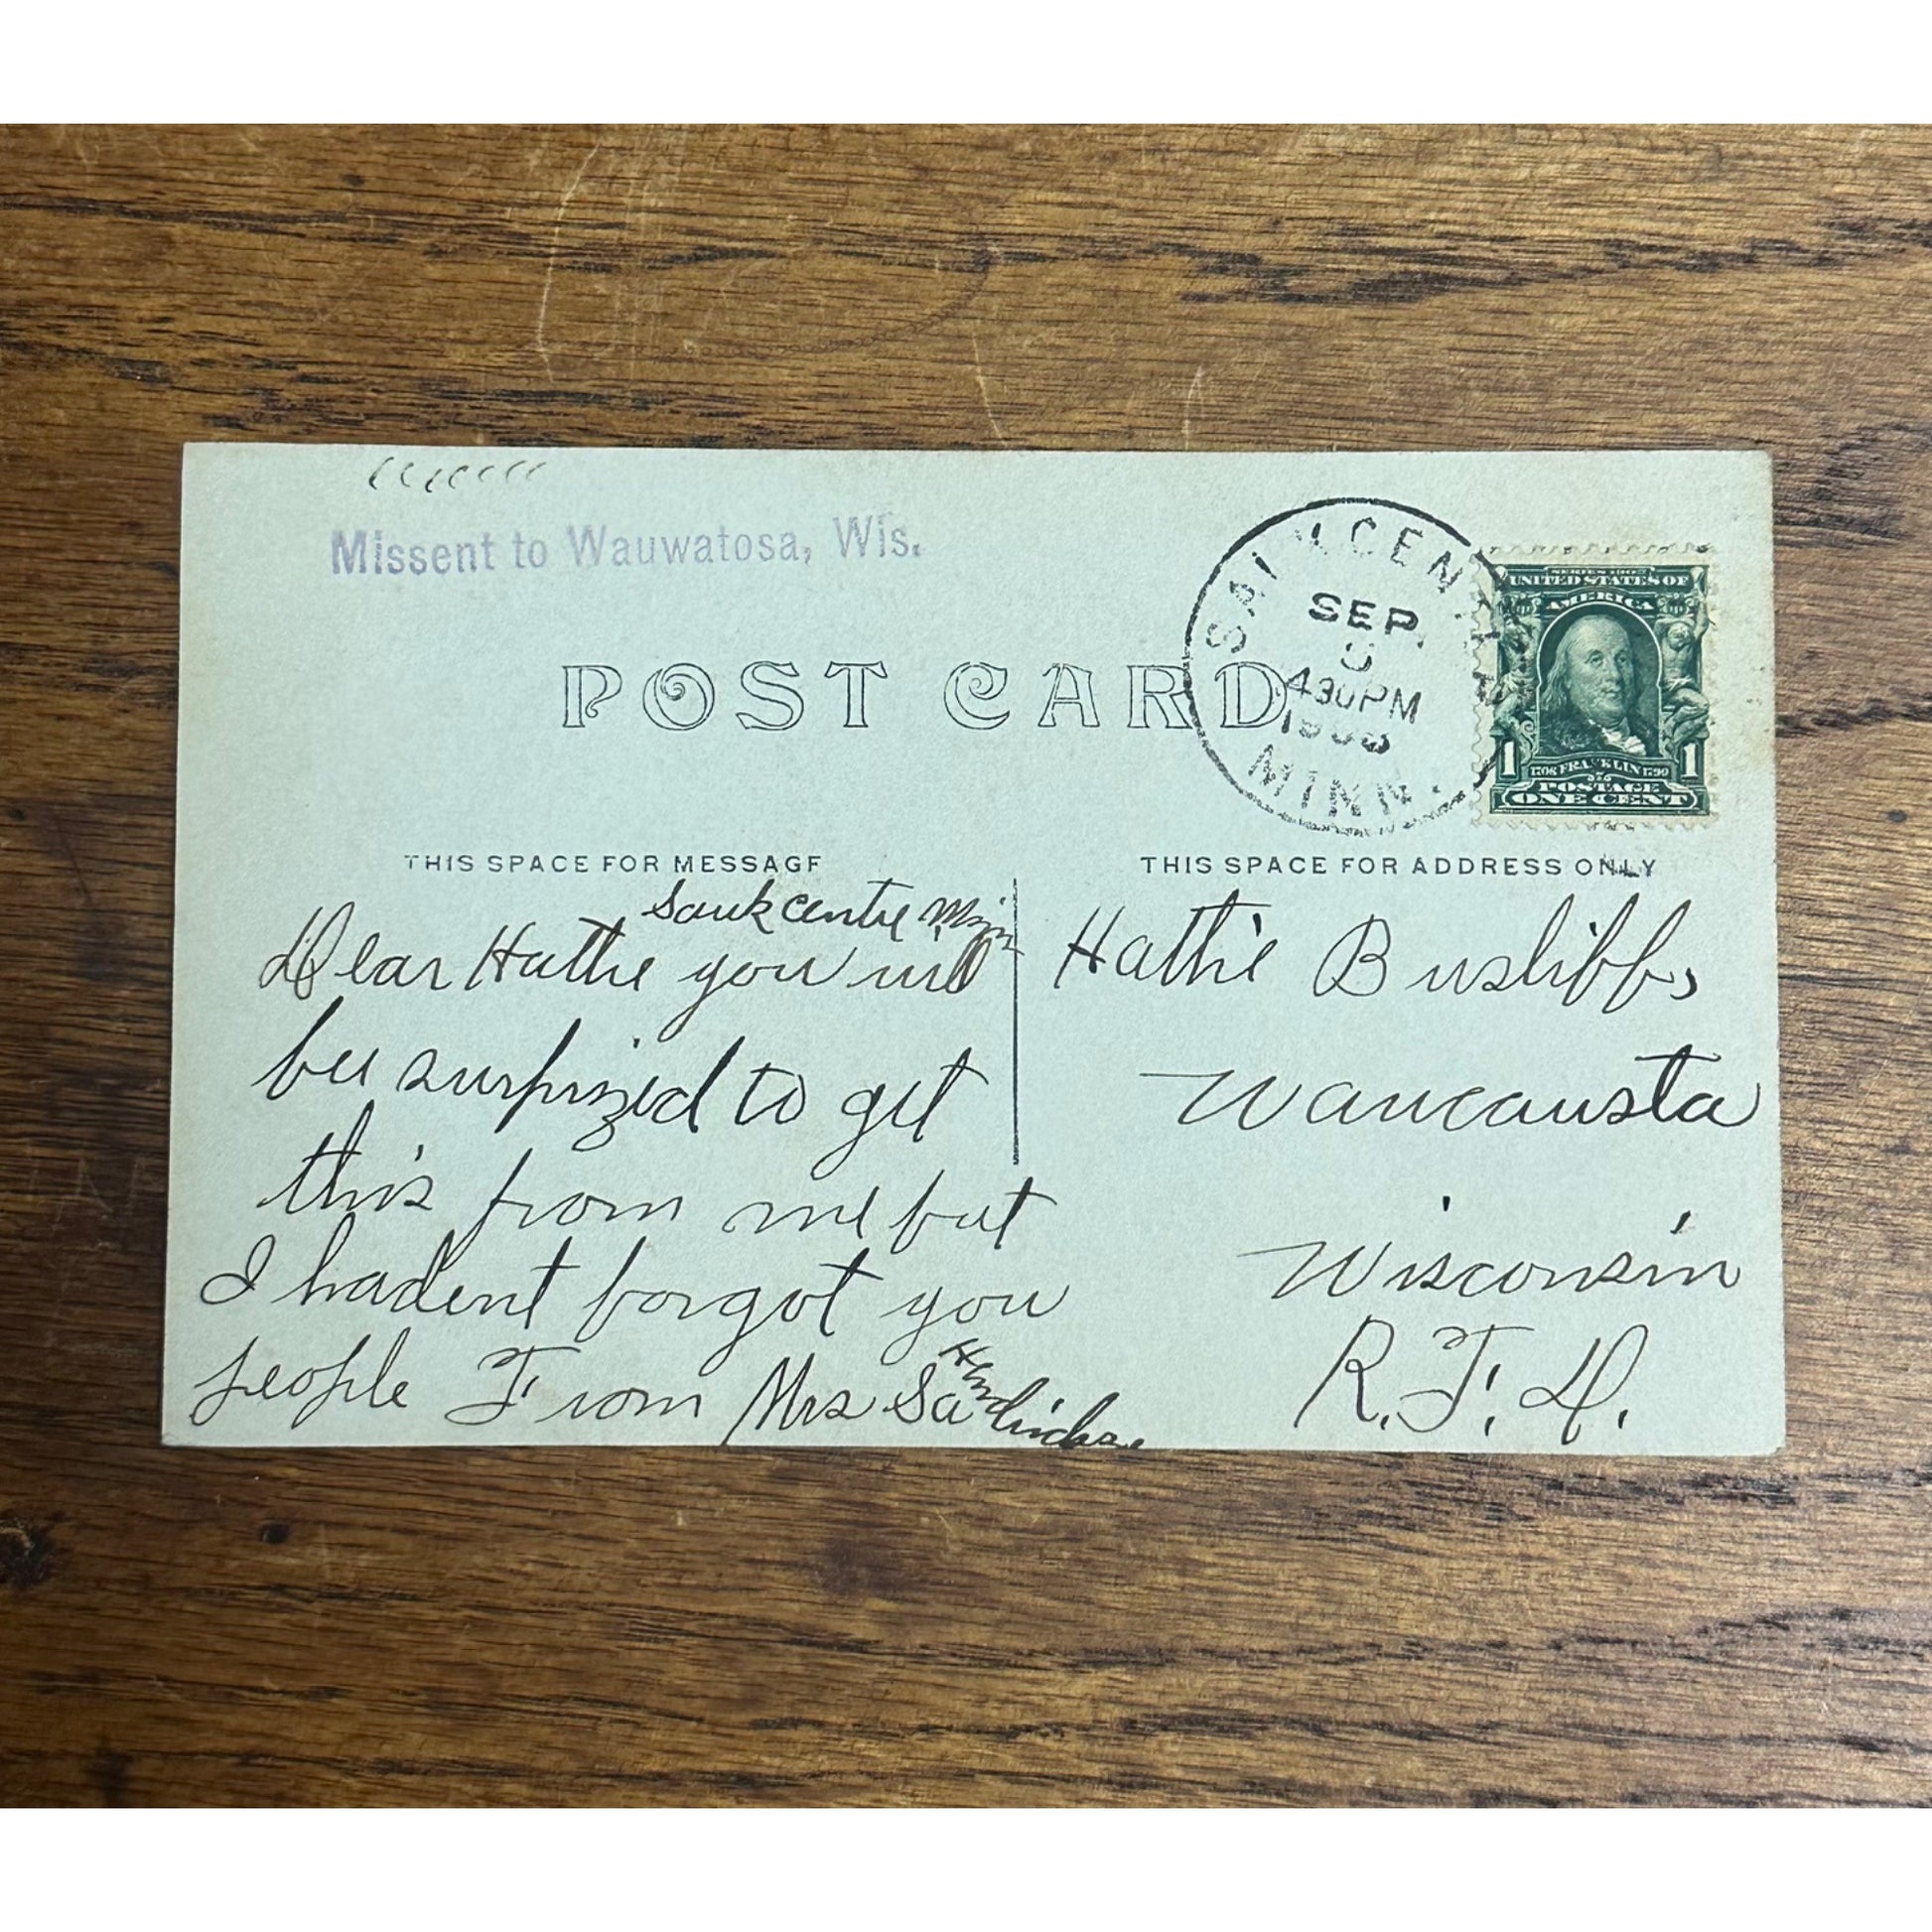 Missent to Wauwatosa, Wis.
POST CARD
SEP
430PM
MINN.
SERIES 1902
UNITED STATES OF
AMERICA
1 1
1706 FRANKLIN 1790
POSTAGE
ONE CENT
THIS SPACE FOR MESSAGE
THIS SPACE FOR ADDRESS ONLY
Sauk Centre Minn
Dear Hattie you will
be surprized to get
this from me but
I hadent forgot you
people From Mrs
Hattie
Waucausta
Wisconsin
R.F.D.